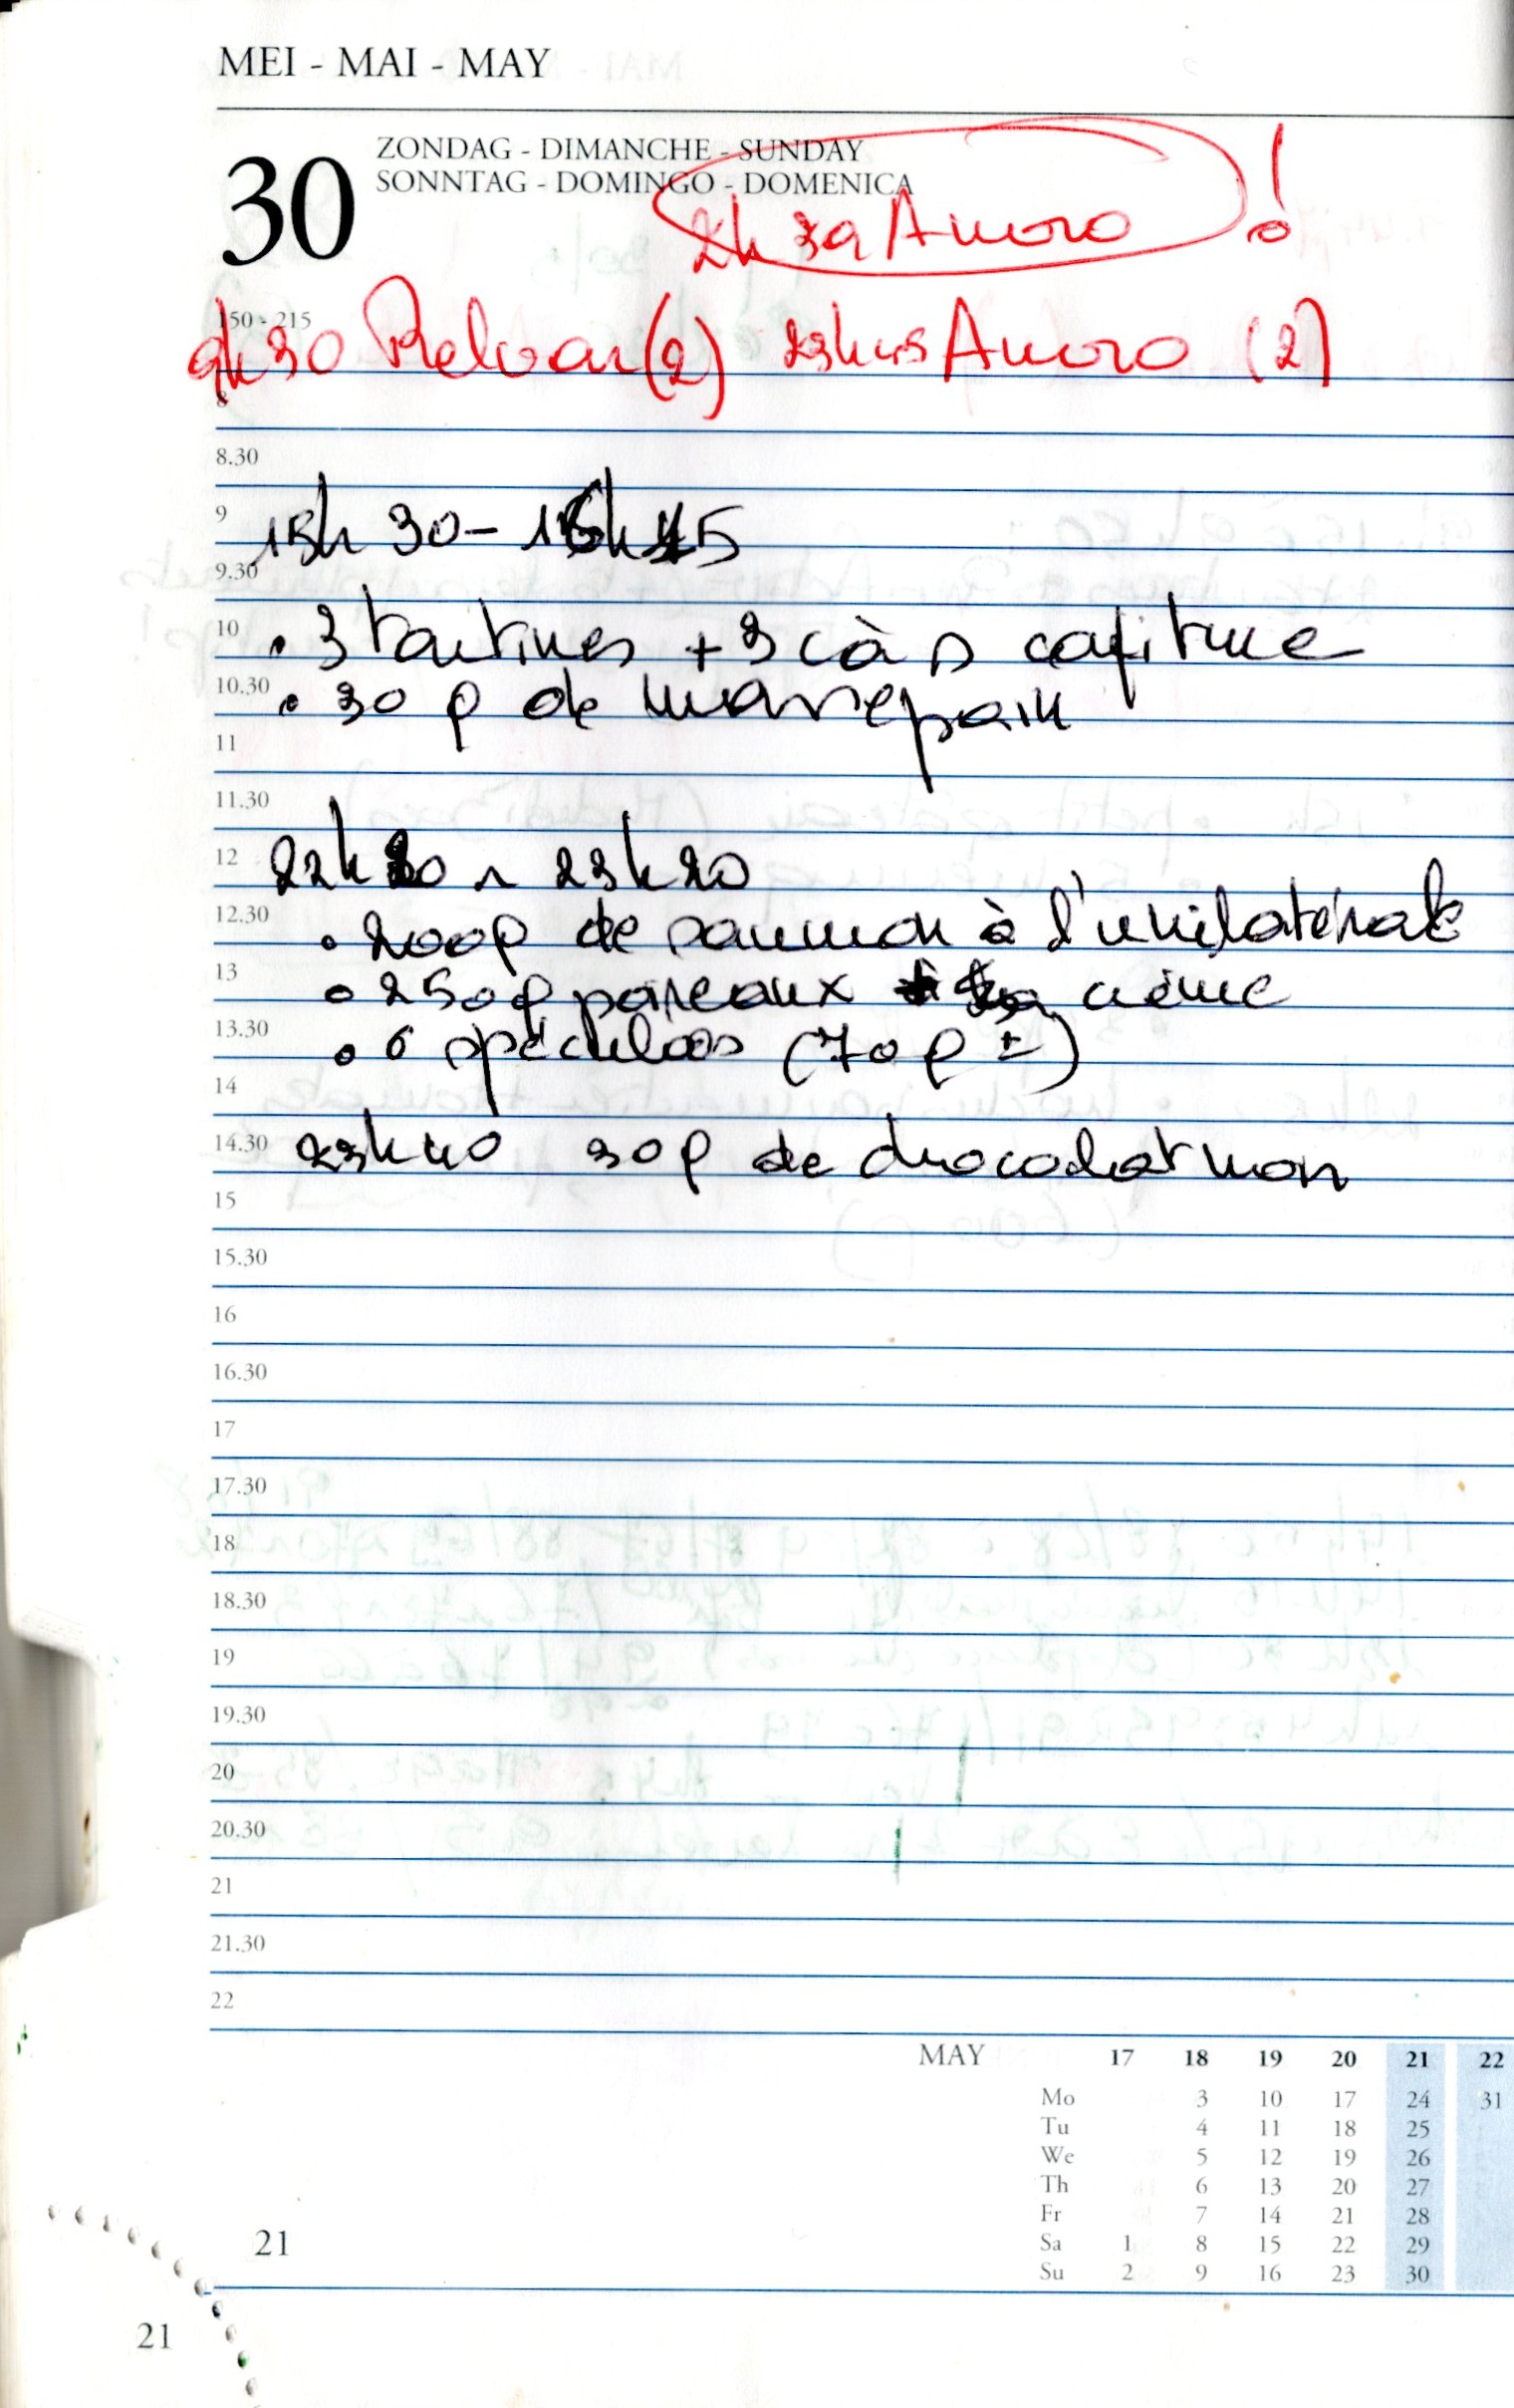 MEI - MAI - MAY
30
ZONDAG - DIMANCHE - SUNDAY
SONNTAG - DOMINGO - DOMENICA
Anoro !
150 - 215
9h30 Relvar (2) 23h45 Anoro (2)
8
8.30
9
15h 30 - 16h 45
9.30
10
. 3 tartines + 3 c à s confiture
10.30
. 30 g de massepain
11
11.30
12
23h20
12.30
. 200g de saumon à l'unilatérale
13
. 250g poireaux crème
13.30
. 6 spéculoos (70 g ±)
14
14.30
23h40 30g de chocolat noir
15
15.30
16
16.30
17
17.30
18
18.30
19
19.30
20
20.30
21
21.30
22
MAY 17 18 19 20 21 22
Mo 3 10 17 24 31
Tu 4 11 18 25
We 5 12 19 26
Th 6 13 20 27
Fr 7 14 21 28
Sa 1 8 15 22 29
Su 2 9 16 23 30
21
21